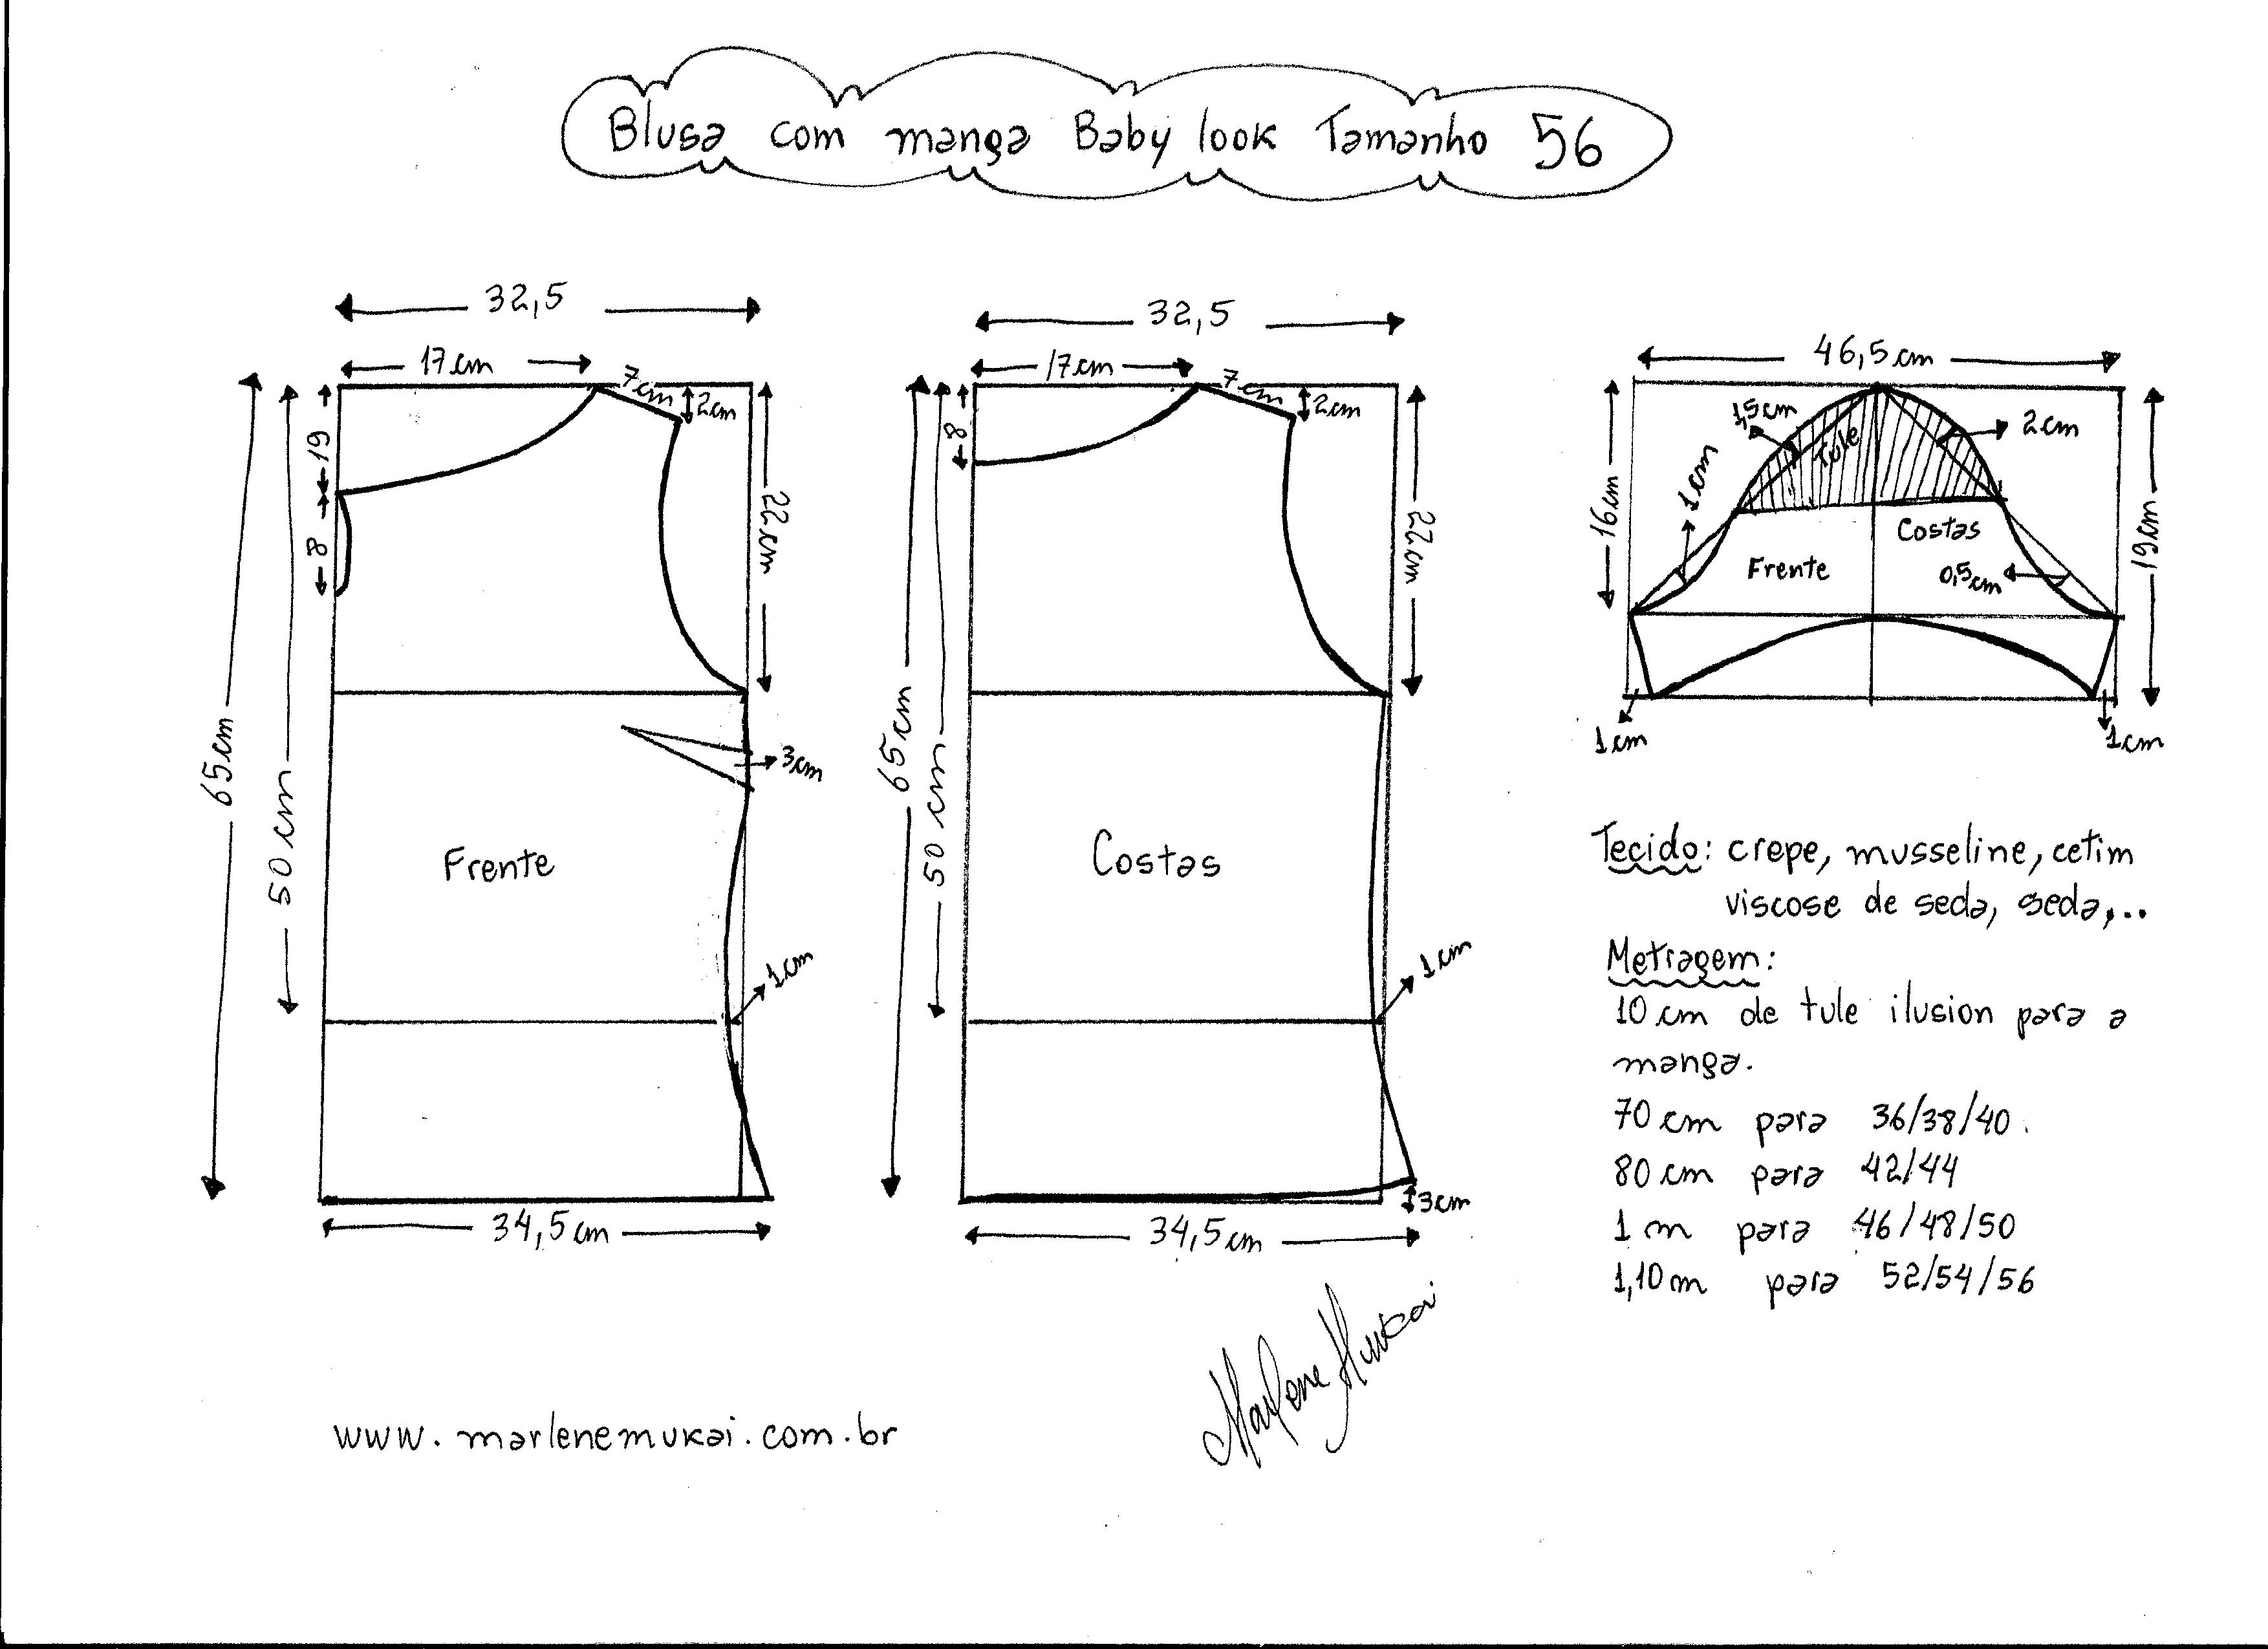 Blusa com manga Baby look Tamanho 56
32,5
17cm
7cm
2cm
19
8
22cm
65cm
50cm
3cm
Frente
1cm
34,5cm
32,5
17cm
7cm
2cm
8
22cm
65cm
50cm
Costas
1cm
3cm
34,5cm
46,5cm
1,5cm
Tule
2cm
1cm
16cm
Costas
Frente
0,5cm
19cm
1cm
1cm
Tecido: crepe, musseline, cetim
viscose de seda, seda,...
Metragem:
10 cm de tule ilusion para a
manga.
70 cm para 36/38/40.
80 cm para 42/44
1 m para 46/48/50
1,10m para 52/54/56
Marlene Mukai
www.marlenemukai.com.br